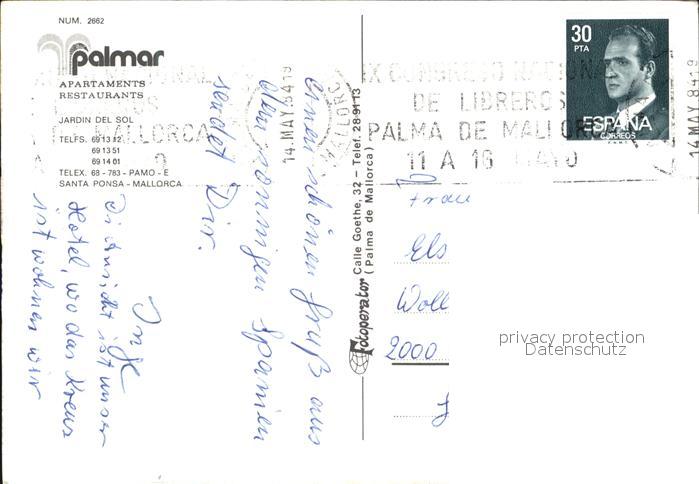 NUM. 2662
palmar
APARTAMENTS
RESTAURANTS
JARDIN DEL SOL
TELFS. 69 13 12
69 13 51
69 14 01
TELEX. 68 - 783 - PAMO - E
SANTA PONSA - MALLORCA
einen schönen Gruß aus
dem sonnigen Spanien
sendet Dir.
Inge
Die Ansicht ist unser
Hotel, wo das Kreuz
ist wohnen wir
Fotoperator
Calle Goethe, 32 - Telef. 28 91 13
(Palma de Mallorca)
14 MAY 84 19
MALLORCA
IX CONGRESO NACIONAL
DE LIBREROS
PALMA DE MALLORCA
11 A 16 MAYO
30
PTA
ESPAÑA
CORREOS
Frau
Els
Woll
2000
privacy protection
Datenschutz